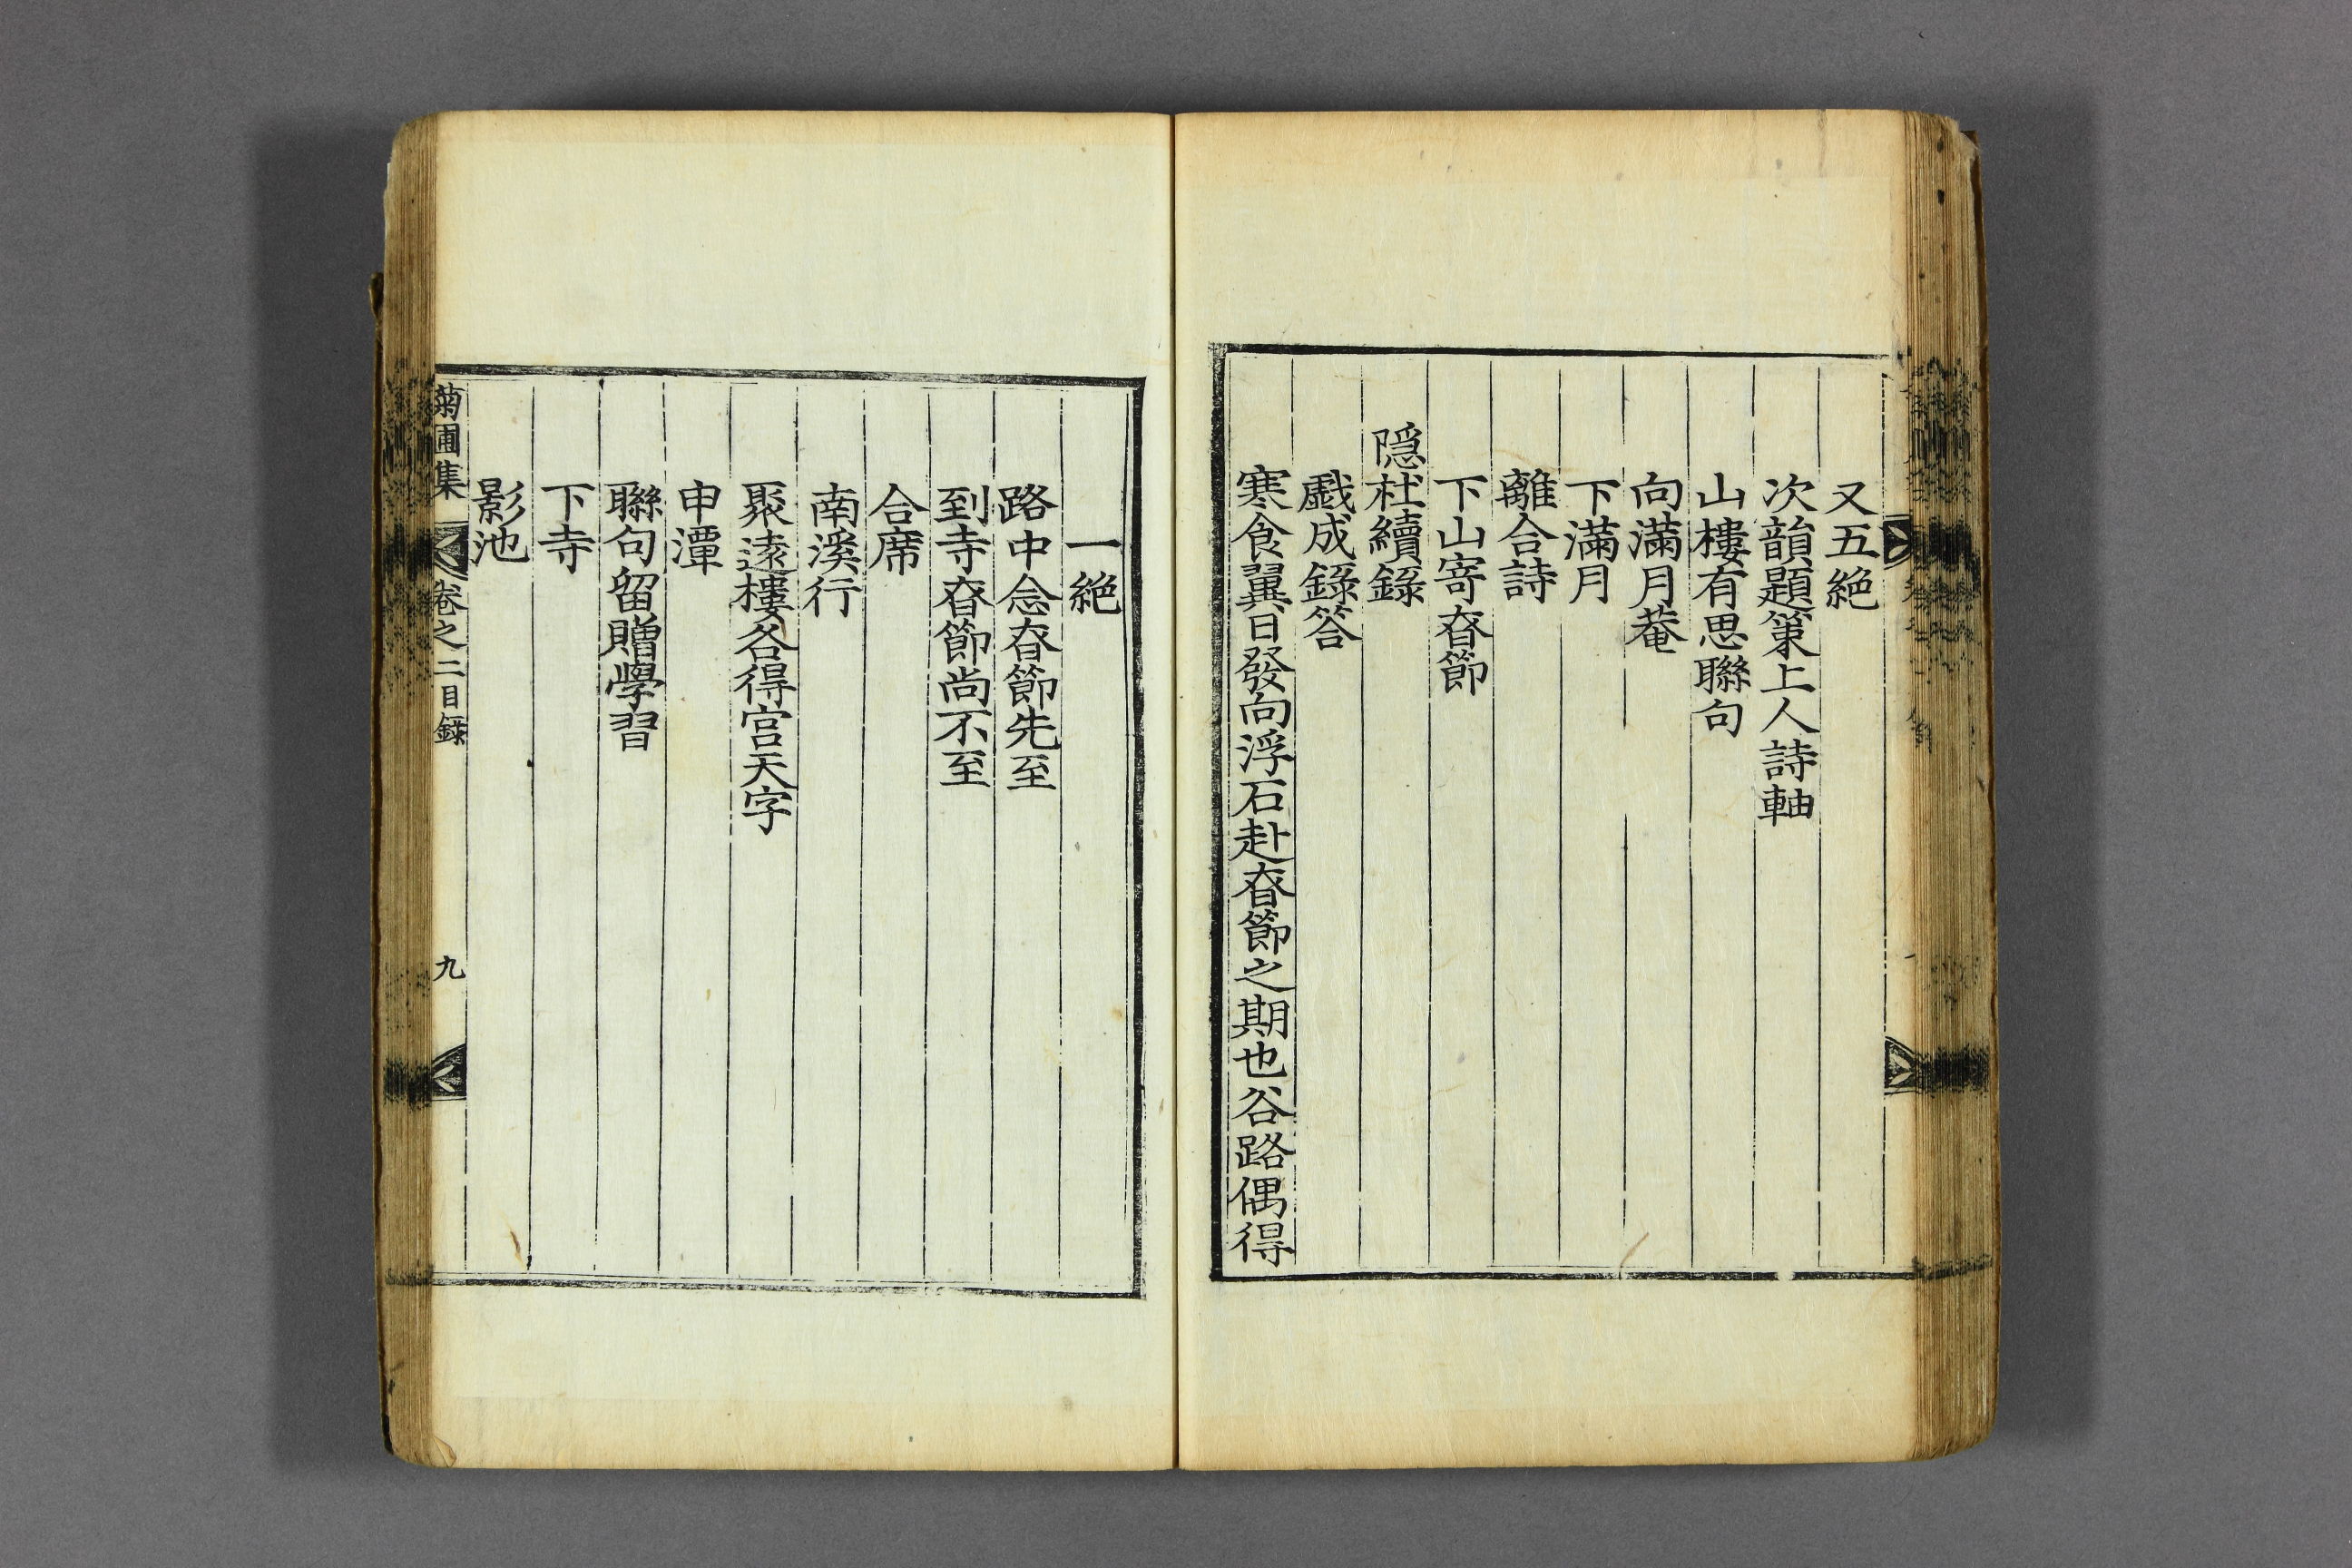 又五絶
次韻題策上人詩軸
山樓有思聯句
向滿月菴
下滿月
離合詩
下山寄㫪節
隠杜續録
戱成録答
寒食翼日發向浮石赴㫪節之期也谷路偶得
一絶
路中念㫪節先至
到寺㫪節尚不至
合席
南溪行
聚遠樓各得宮天字
申潭
聯句留贈學習
下寺
影池
菊圃集
卷之二目録
九